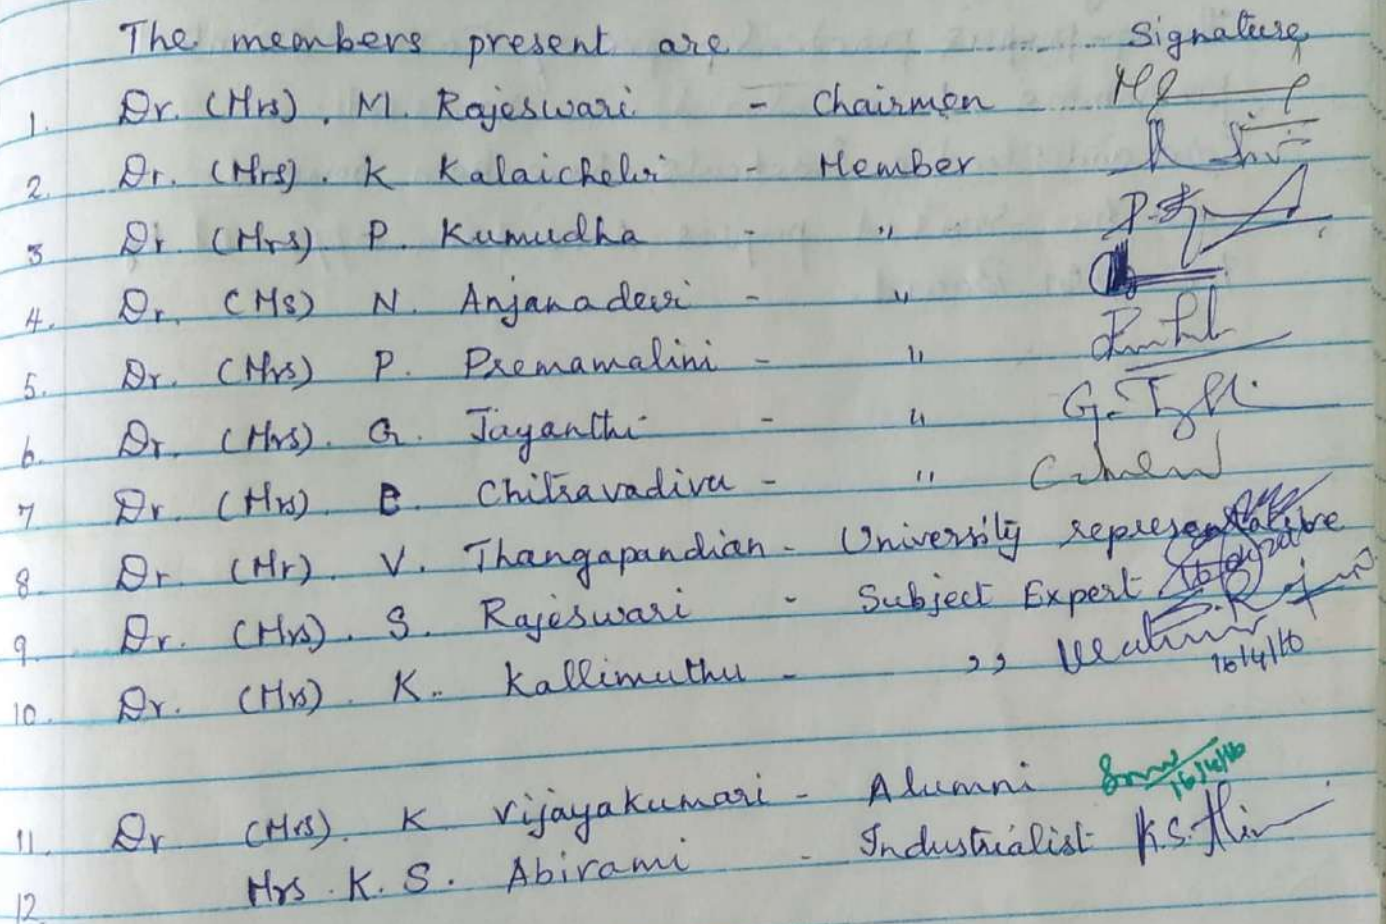 The members present are Signature
1. Dr. (Mrs). M. Rajeswari - Chairmen
2. Dr. (Mrs). K Kalaichelvi - Member
3 Dr (Mrs). P. Kumudha - "
4. Dr. (Ms) N. Anjanadevi - "
5. Dr. (Mrs) P. Premamalini - "
6. Dr. (Mrs). G. Jayanthi - "
7 Dr. (Mrs) C Chitravadivu - "
8 Dr (Mr). V. Thangapandian - University representative
9 Dr. (Mrs). S. Rajeswari - Subject Expert S. Raj
10. Dr. (Mrs). K. Kallimuthu - ,, 16/4/16
11. Dr (Mrs). K Vijayakumari - Alumni 16/4/16
12 Mrs. K. S. Abirami - Industrialist K.S.